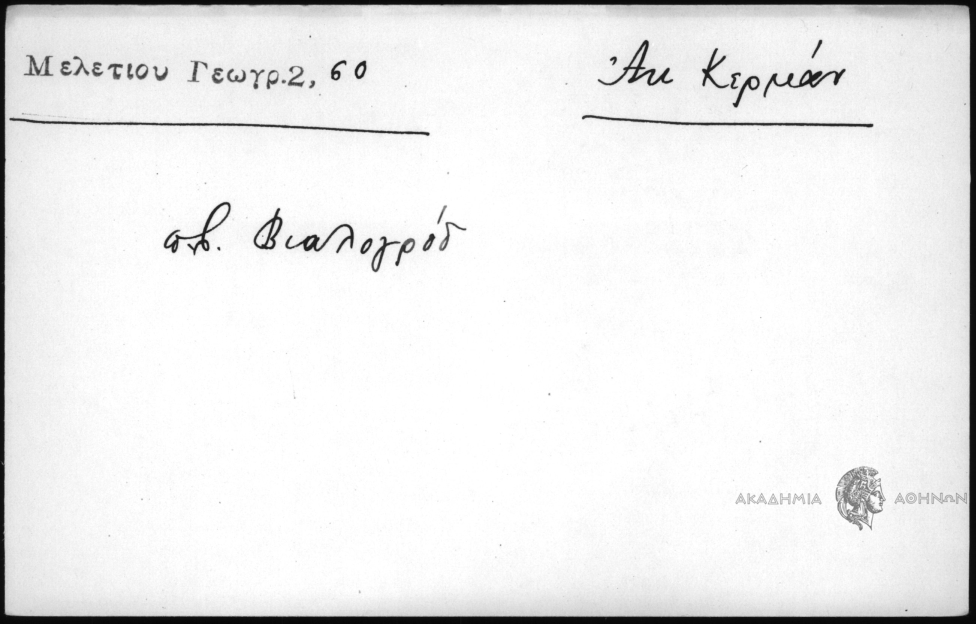 Μελετιου Γεωγρ.2, 60
Ἀκ Κερμάν
πβ. Βιαλογρόδ
ΑΚΑΔΗΜΙΑ ΑΘΗΝΩΝ